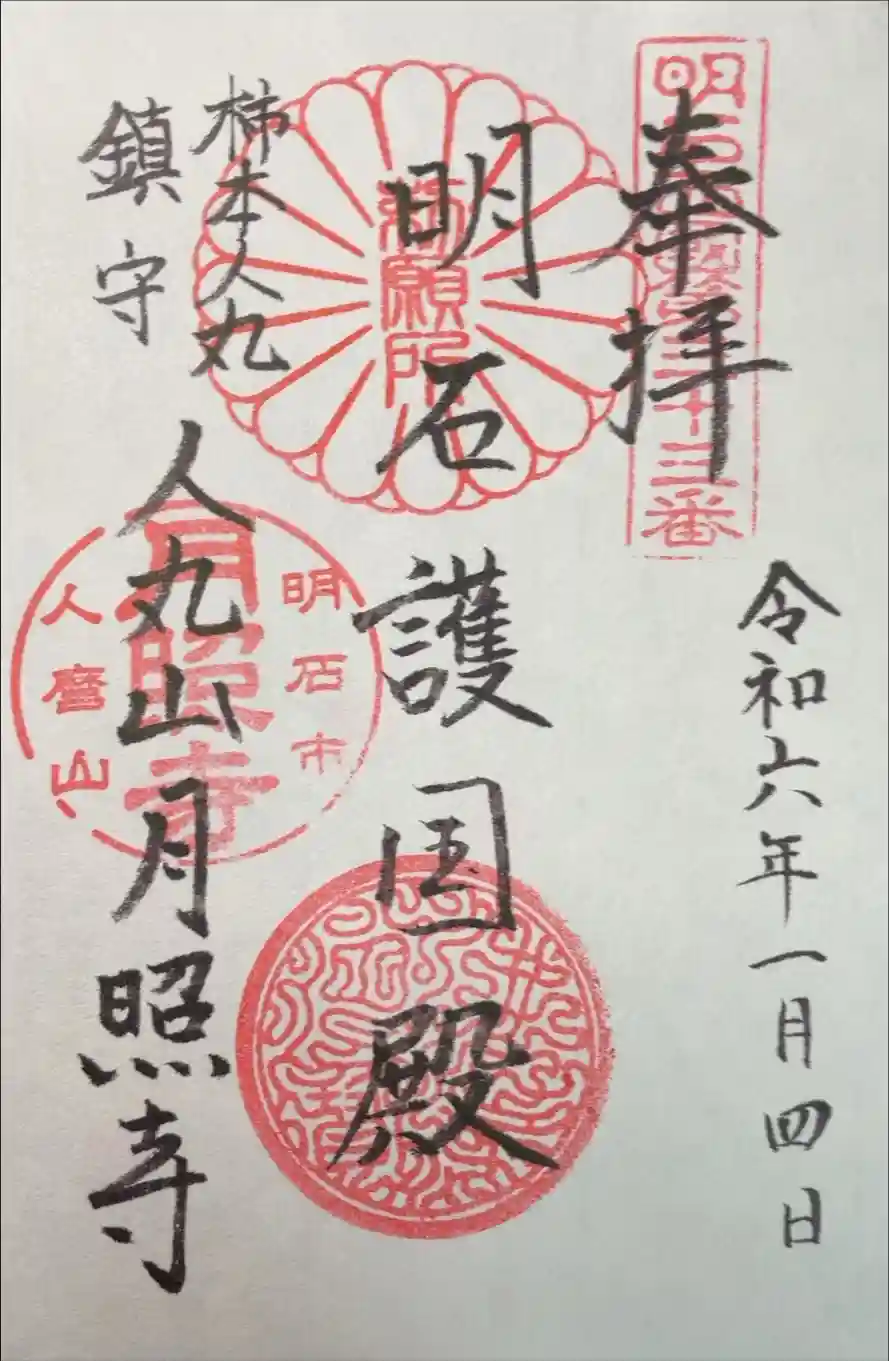 奉拝
令和六年一月四日
明石護国殿
柿本人丸
鎮守
人丸山月照寺
勅願所
明石市
月照寺
人麿山